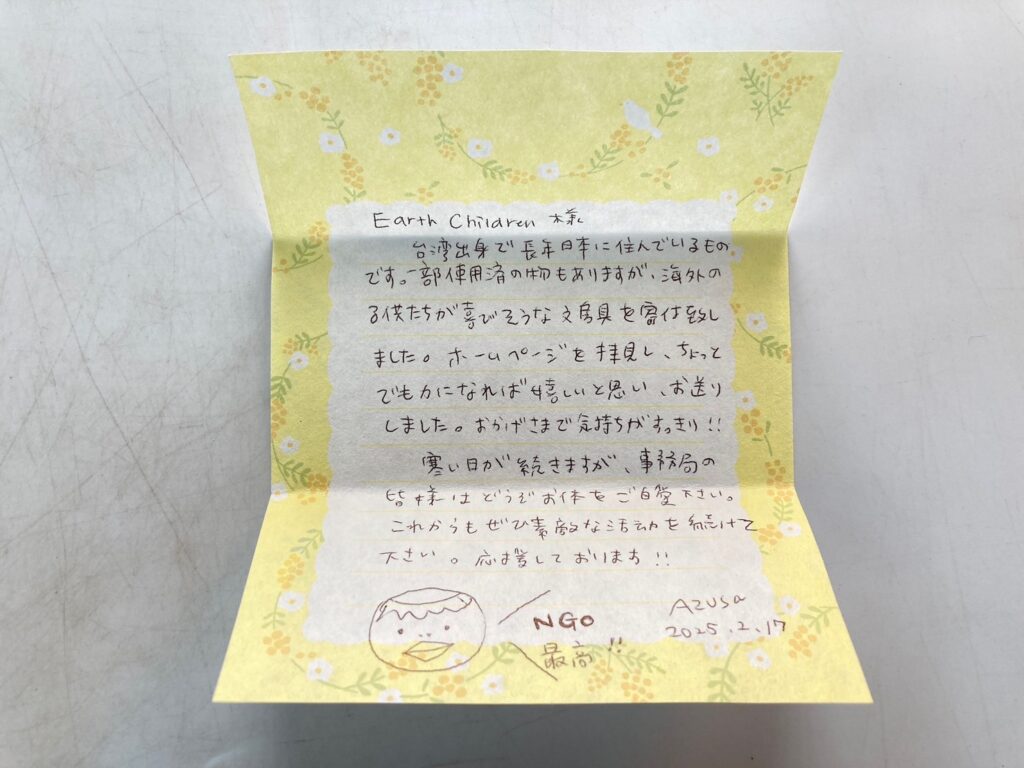 Earth Children 様
台湾出身で長年日本に住んでいるもの
です。一部使用済の物もありますが、海外の
子供たちが喜びそうな文房具を寄付致し
ました。ホームページを拝見し、ちょっと
でも力になれば嬉しいと思い、お送り
しました。おかげさまで気持ちがすっきり!!
寒い日が続きますが、事務局の
皆様はどうぞお体をご自愛下さい。
これからもぜひ素敵な活動を続けて
下さい。応援しております!!
NGO
最高!!
Azusa
2025.2.17